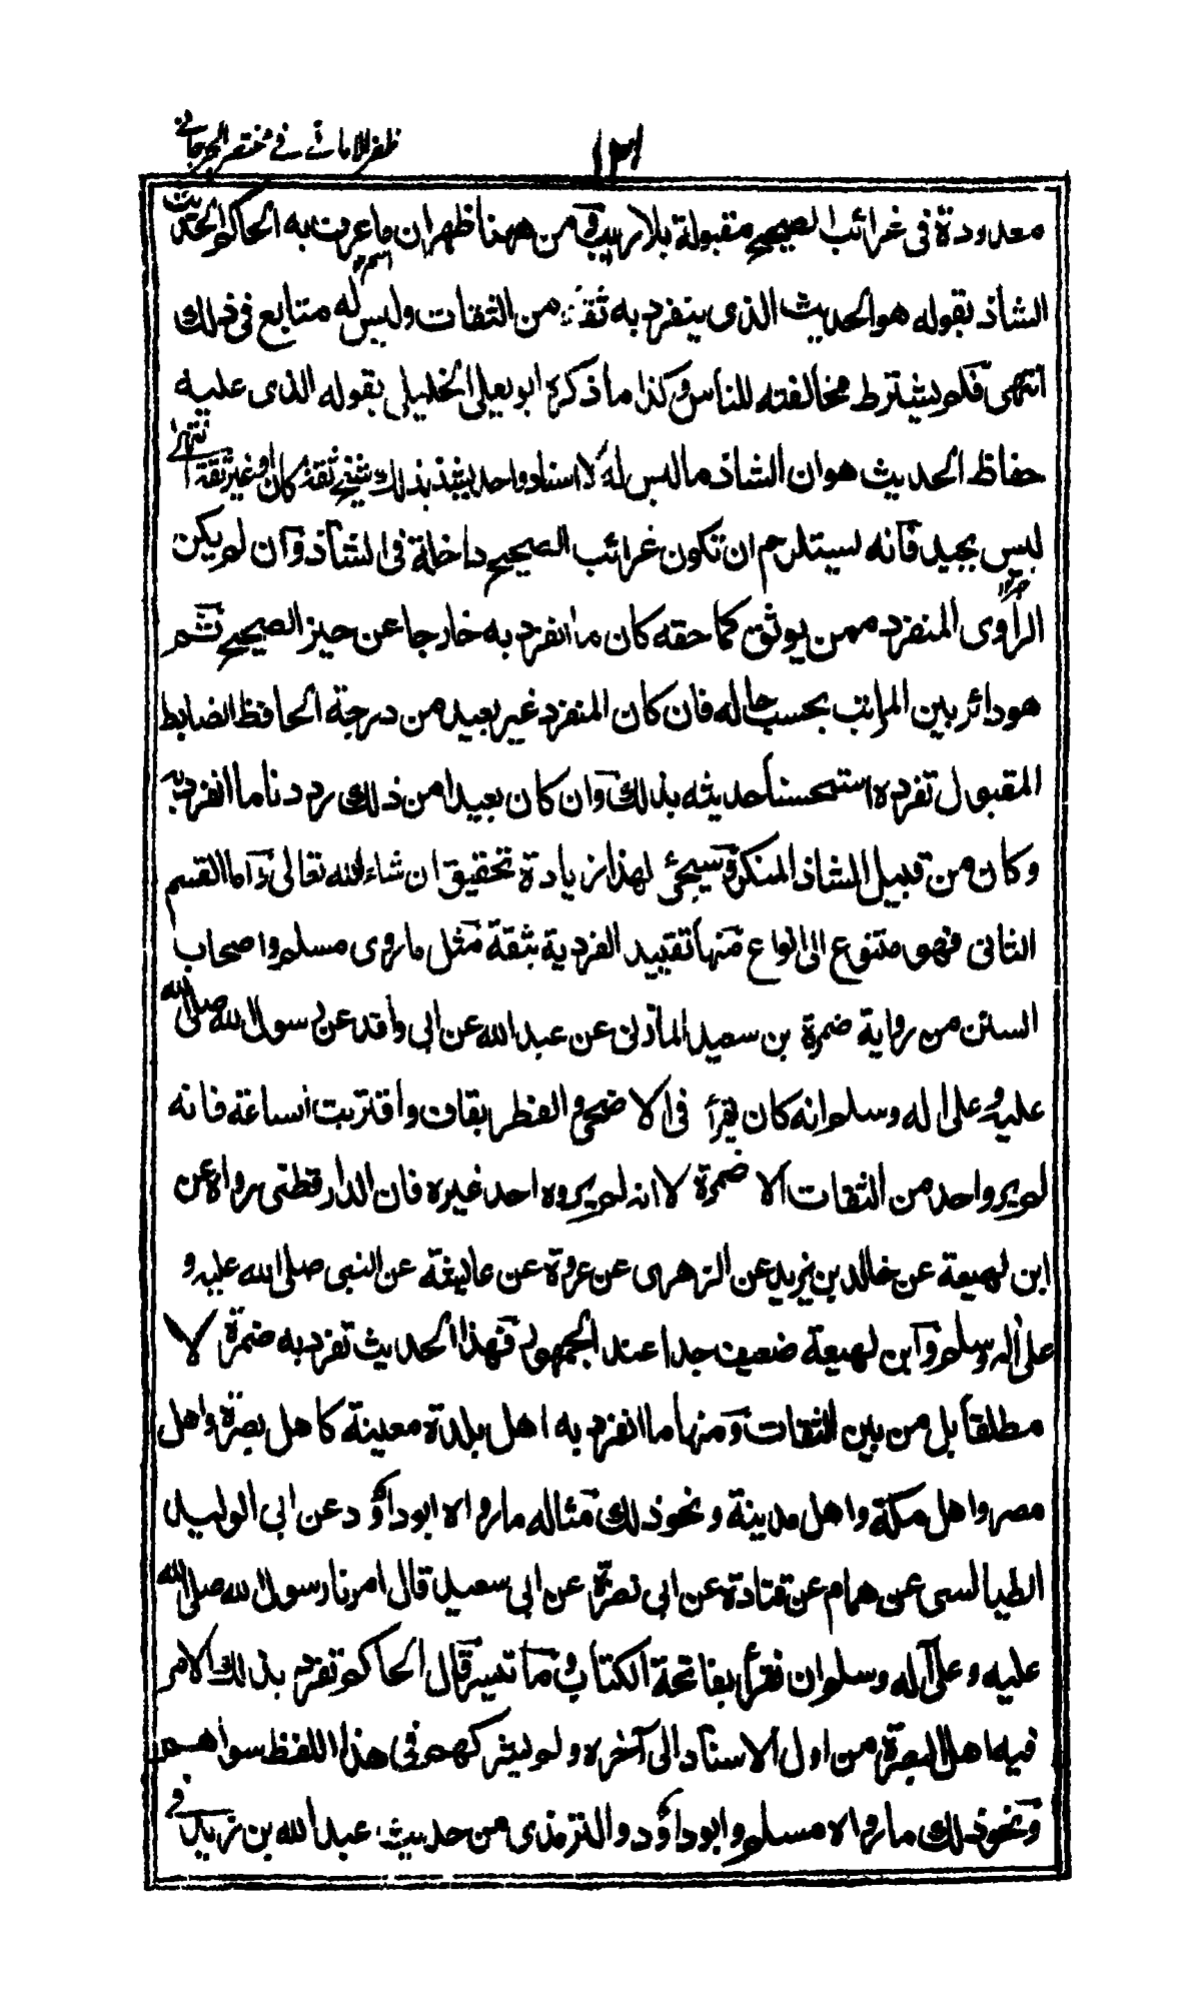 ظفر الامانی فی مختصر الجرجانی
۱۳۱
معدودة فی غرائب الصحیح مقبولة بلاریب ومن ههنا ظهران ماعرف به الحاکم الحدیث
الشاذ بقوله هوالحدیث الذی ینفرد به ثقة من الثقات ولیس له متابع فی ذلك
انتهی فلم یشترط مخالفته للناس وکذا ماذکره ابویعلی الخلیلی بقوله الذی علیه
حفاظ الحدیث هوان الشاذ مالیس له الا اسناد واحد یشذ بذلك شیخ ثقة کان اوغیرثقة انتهی
لیس بجید فانه یستلزم ان تکون غرائب الصحیح داخلة فی الشاذ وان لم یکن
الراوی المنفرد ممن یوثق کما حقه کان ماانفرد به خارجا عن حیز الصحیح ثم
هودائر بین المراتب بحسب حاله فان کان المنفرد غیر بعید من درجة الحافظ الضابط
المقبول تفرده استحسنا حدیثه بذلك وان کان بعیدا من ذلك رددنا ماانفرد به
وکان من قبیل الشاذ المنکر وسیجئ لهذا زیادة تحقیق ان شاء الله تعالی واما القسم
الثانی فهو متنوع الی انواع منها تقیید الفردیة بثقة مثل ماروی مسلم واصحاب
السنن من روایة ضمرة بن سعید المازنی عن عبد الله عن ابی واقد عن رسول الله صلی الله
علیه وعلی اله وسلم انه کان یقرأ فی الاضحی والفطر بقاف واقتربت الساعة فانه
لم یرو احد من الثقات الا ضمرة لا انه لم یروه احد غیره فان الدارقطنی رواه عن
ابن لهیعة عن خالد بن یزید عن الزهری عن عروة عن عایشة عن النبی صلی الله علیه و
علی اله وسلم وابن لهیعة ضعیف جدا عند الجمهور فهذا الحدیث تفرد به ضمرة لا
مطلقا بل من بین الثقات ومنها ماانفرد به اهل بلدة معینة کاهل بصرة واهل
مصر واهل مکة واهل مدینة ونحو ذلك مثاله مارواه ابوداؤد عن ابی الولید
الطیالسی عن همام عن قتادة عن ابی نضرة عن ابی سعید قال امرنا رسول الله صلی الله
علیه وعلی آله وسلم ان نقرأ بفاتحة الکتاب وما تیسر قال الحاکم تفرد بذلك الامر
فیه اهل البصرة من اول الاسناد الی آخره ولم یشرکهم فی هذا اللفظ سواهم
ونحو ذلك مارواه مسلم وابوداؤد والترمذی من حدیث عبد الله بن زید فی